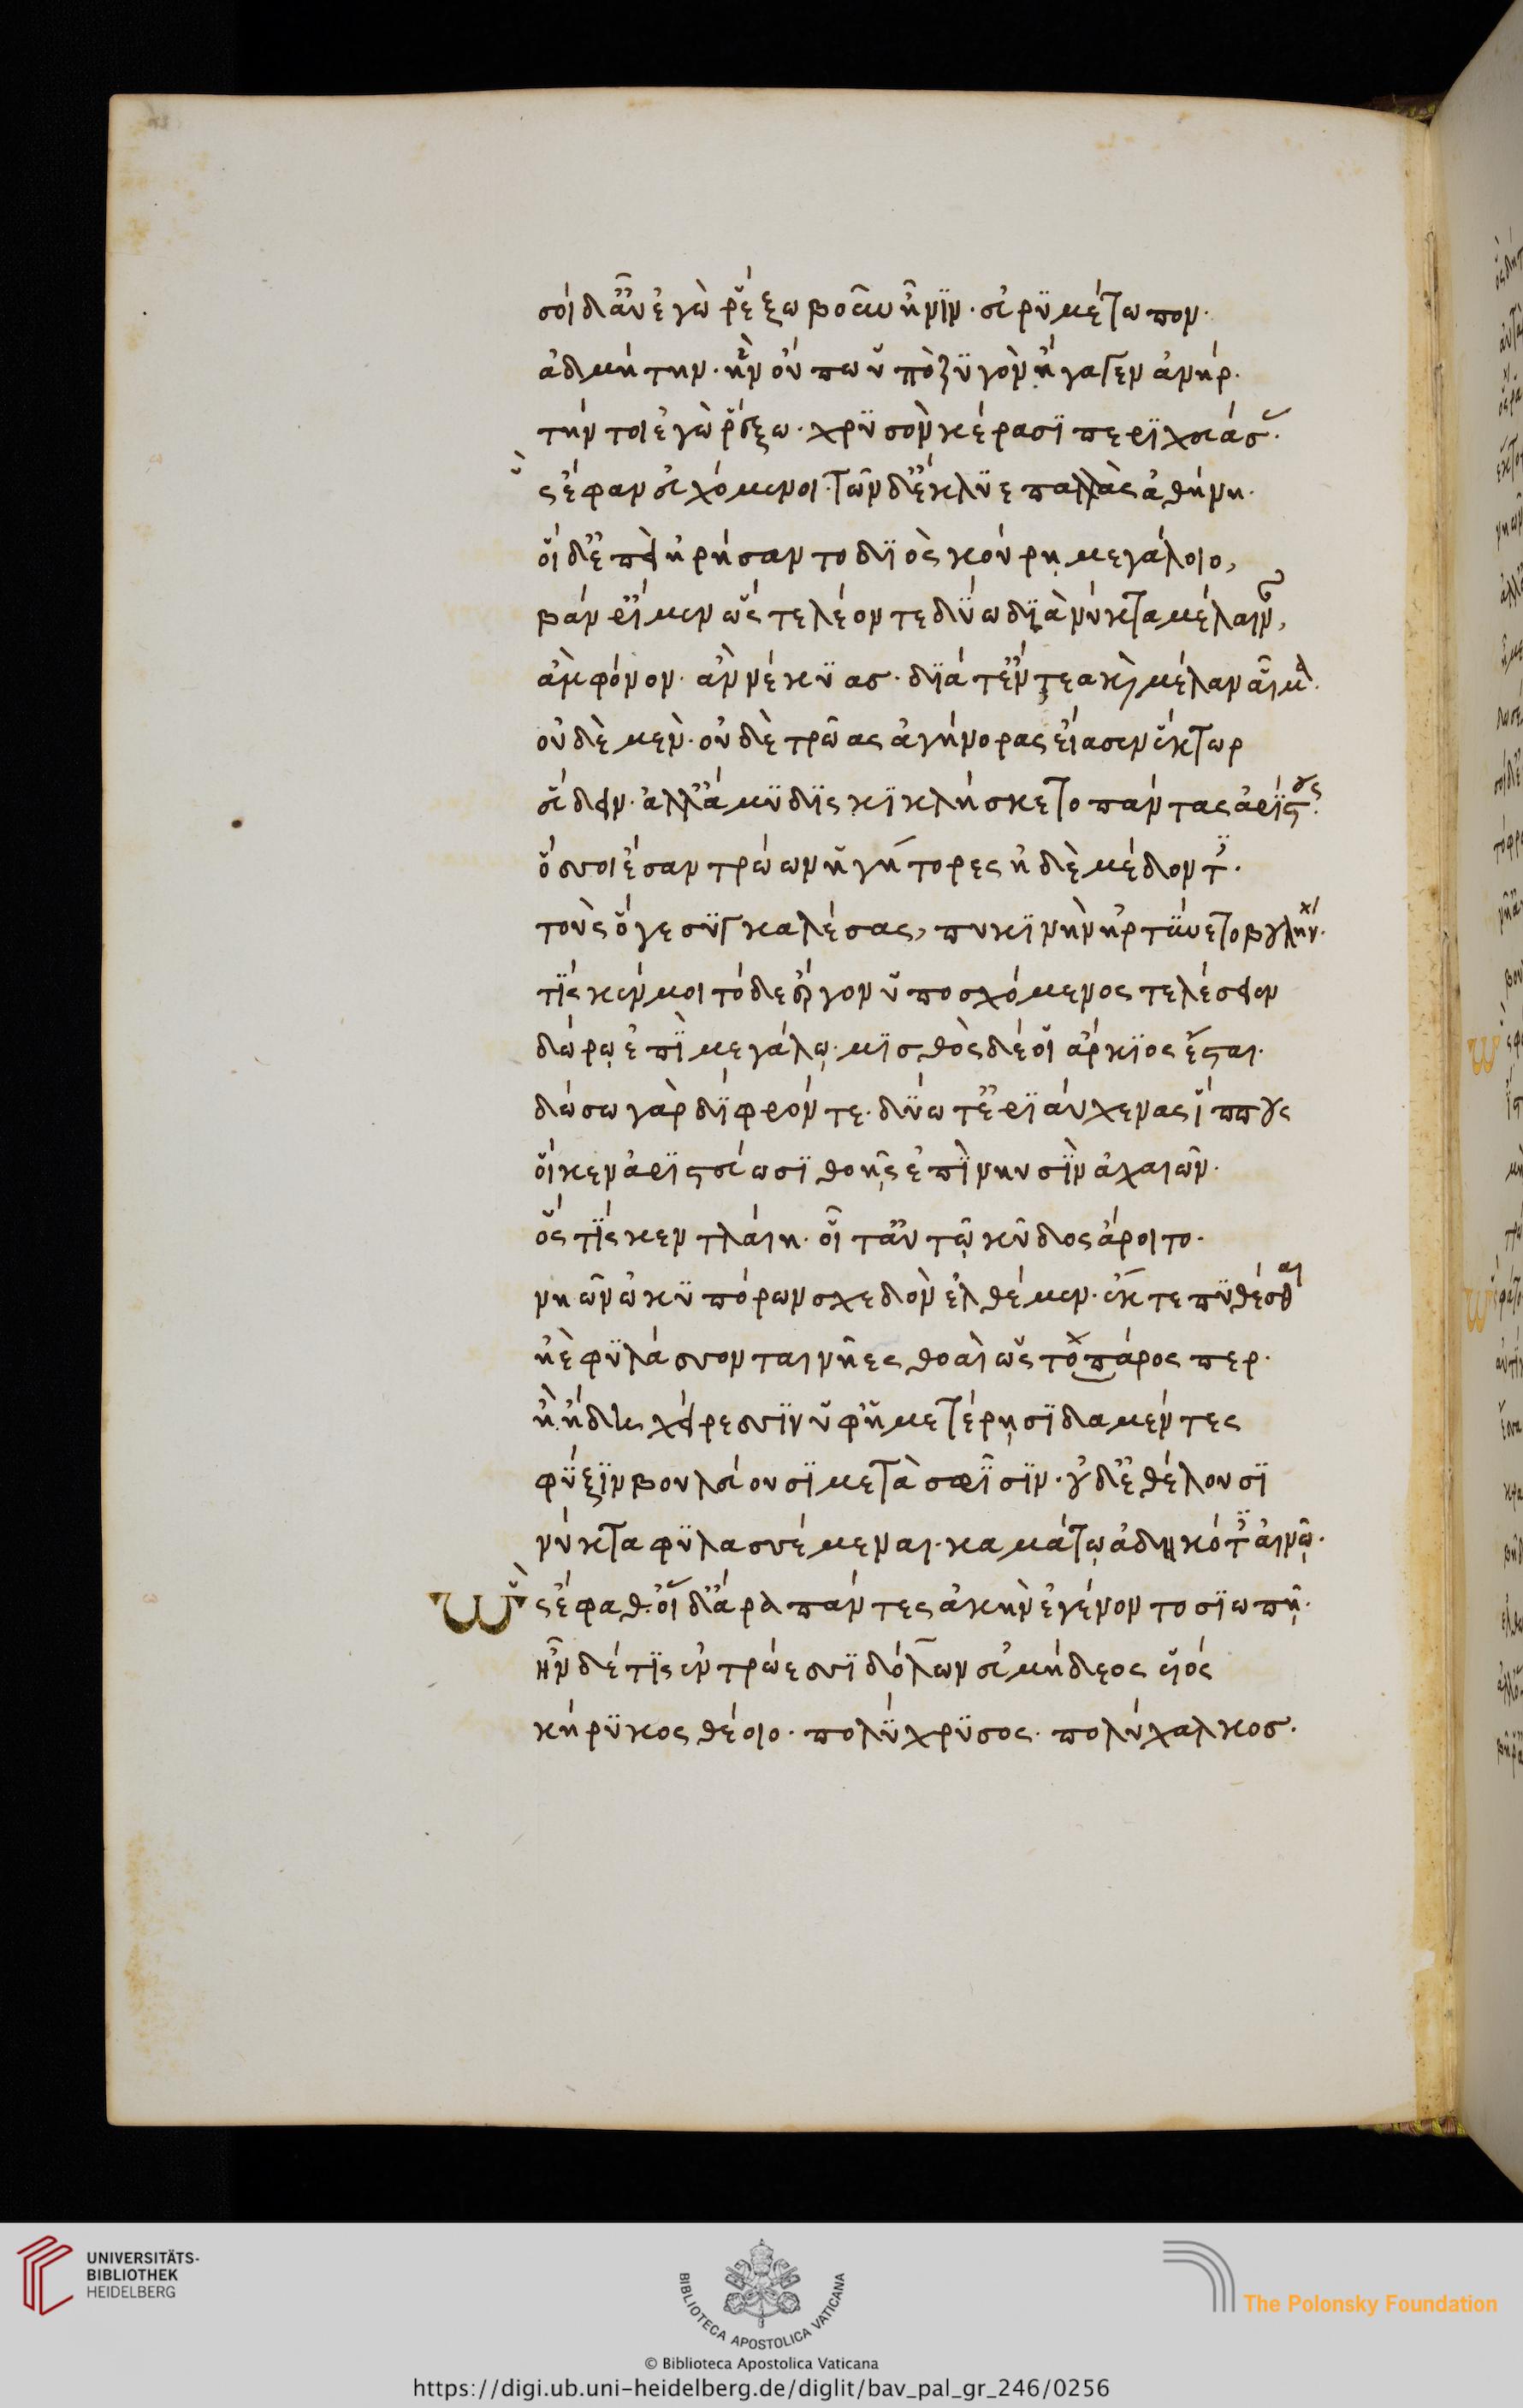 σοὶ δ' αὖ ἐγὼ ῥέξω βοῦν ἦνιν· εὐρυμέτωπον·
ἀδμήτην· ἣν οὔπω ὑπὸ ζυγὸν ἤγαγεν ἀνήρ·
τήν τοι ἐγὼ ῥέξω· χρυσὸν κέρασι περιχεύας·
ὣς ἔφαν εὐχόμενοι· τῶν δ' ἔκλυε παλλὰς ἀθήνη·
οἱ δ' ἐπεὶ ἠρήσαντο διὸς κούρῃ μεγάλοιο,
βάν ῥ' ἴμεν ὥς τε λέοντε δύω διὰ νύκτα μέλαιναν,
ἂμ φόνον· ἂν νέκυας· διά τ' ἔντεα καὶ μέλαν αἷμα·
οὐδὲ μὲν· οὐδὲ τρῶας ἀγήνορας εἴασεν ἕκτωρ
εὕδειν· ἀλλ' ἄμυδις κικλήσκετο πάντας ἀρίστους·
ὅσσοι ἔσαν τρώων ἡγήτορες ἠδὲ μέδοντες·
τοὺς ὅγε συγκαλέσας, πυκινὴν ἠρτύνετο βουλήν·
τίς κέν μοι τόδε ἔργον ὑποσχόμενος τελέσειεν
δώρῳ ἐπὶ μεγάλῳ· μισθὸς δέ οἱ ἄρκιος ἔσται·
δώσω γὰρ δίφρόν τε· δύω τ' ἐριαύχενας ἵππους
οἵ κεν ἀριστεύωσι θοῇς ἐπὶ νηυσὶν ἀχαιῶν·
ὅς τίς κεν τλαίη· οἷ τ' αὐτῷ κῦδος ἄροιτο·
νηῶν ὠκυπόρων σχεδὸν ἐλθέμεν· ἔκ τε πυθέσθαι
ἠὲ φυλάσσονται νῆες θοαὶ ὡς τὸ πάρος περ·
ἢ ἤδη χείρεσσιν ὑφ' ἡμετέρῃσι δαμέντες
φύξιν βουλεύουσι μετὰ σφίσιν· οὐδ' ἐθέλουσι
νύκτα φυλασσέμεναι· καμάτῳ ἀδηκότες αἰνῷ·
Ὣς ἔφαθ· οἱ δ' ἄρα πάντες ἀκὴν ἐγένοντο σιωπῇ·
ἦν δέ τις ἐν τρώεσσι δόλων εὐμήδεος υἱός
κήρυκος θείοιο· πολύχρυσος· πολύχαλκος·
UNIVERSITÄTS-
BIBLIOTHEK
HEIDELBERG
BIBLIOTECA APOSTOLICA VATICANA
The Polonsky Foundation
© Biblioteca Apostolica Vaticana
https://digi.ub.uni-heidelberg.de/diglit/bav_pal_gr_246/0256